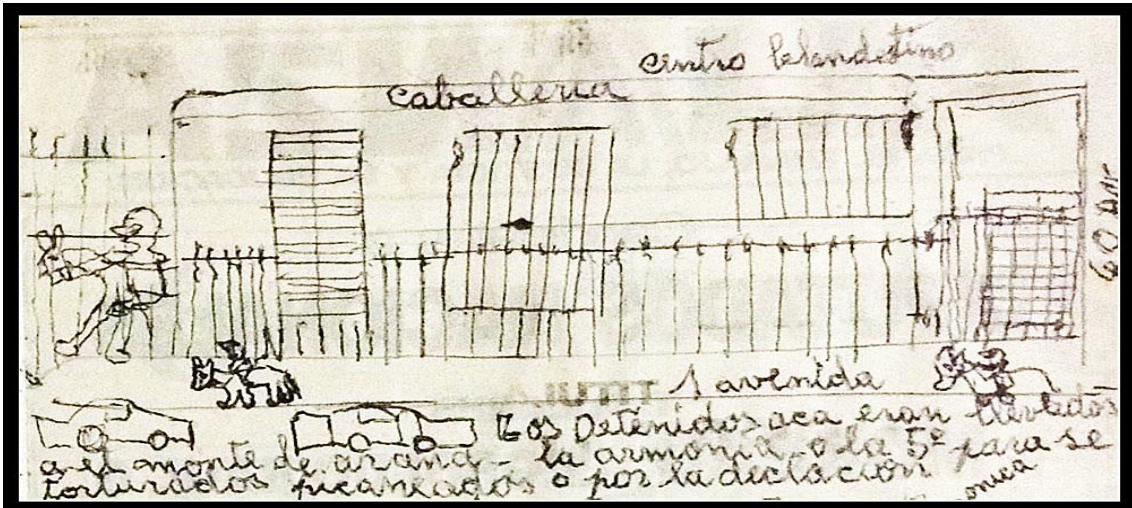 centro Clandestino
caballeria
60 ANT
1 avenida
Los Detenidos aca eran llevados
a el monte de arana - la armonia - o la 5ª para se
torturados picaneados o por la declación
onica